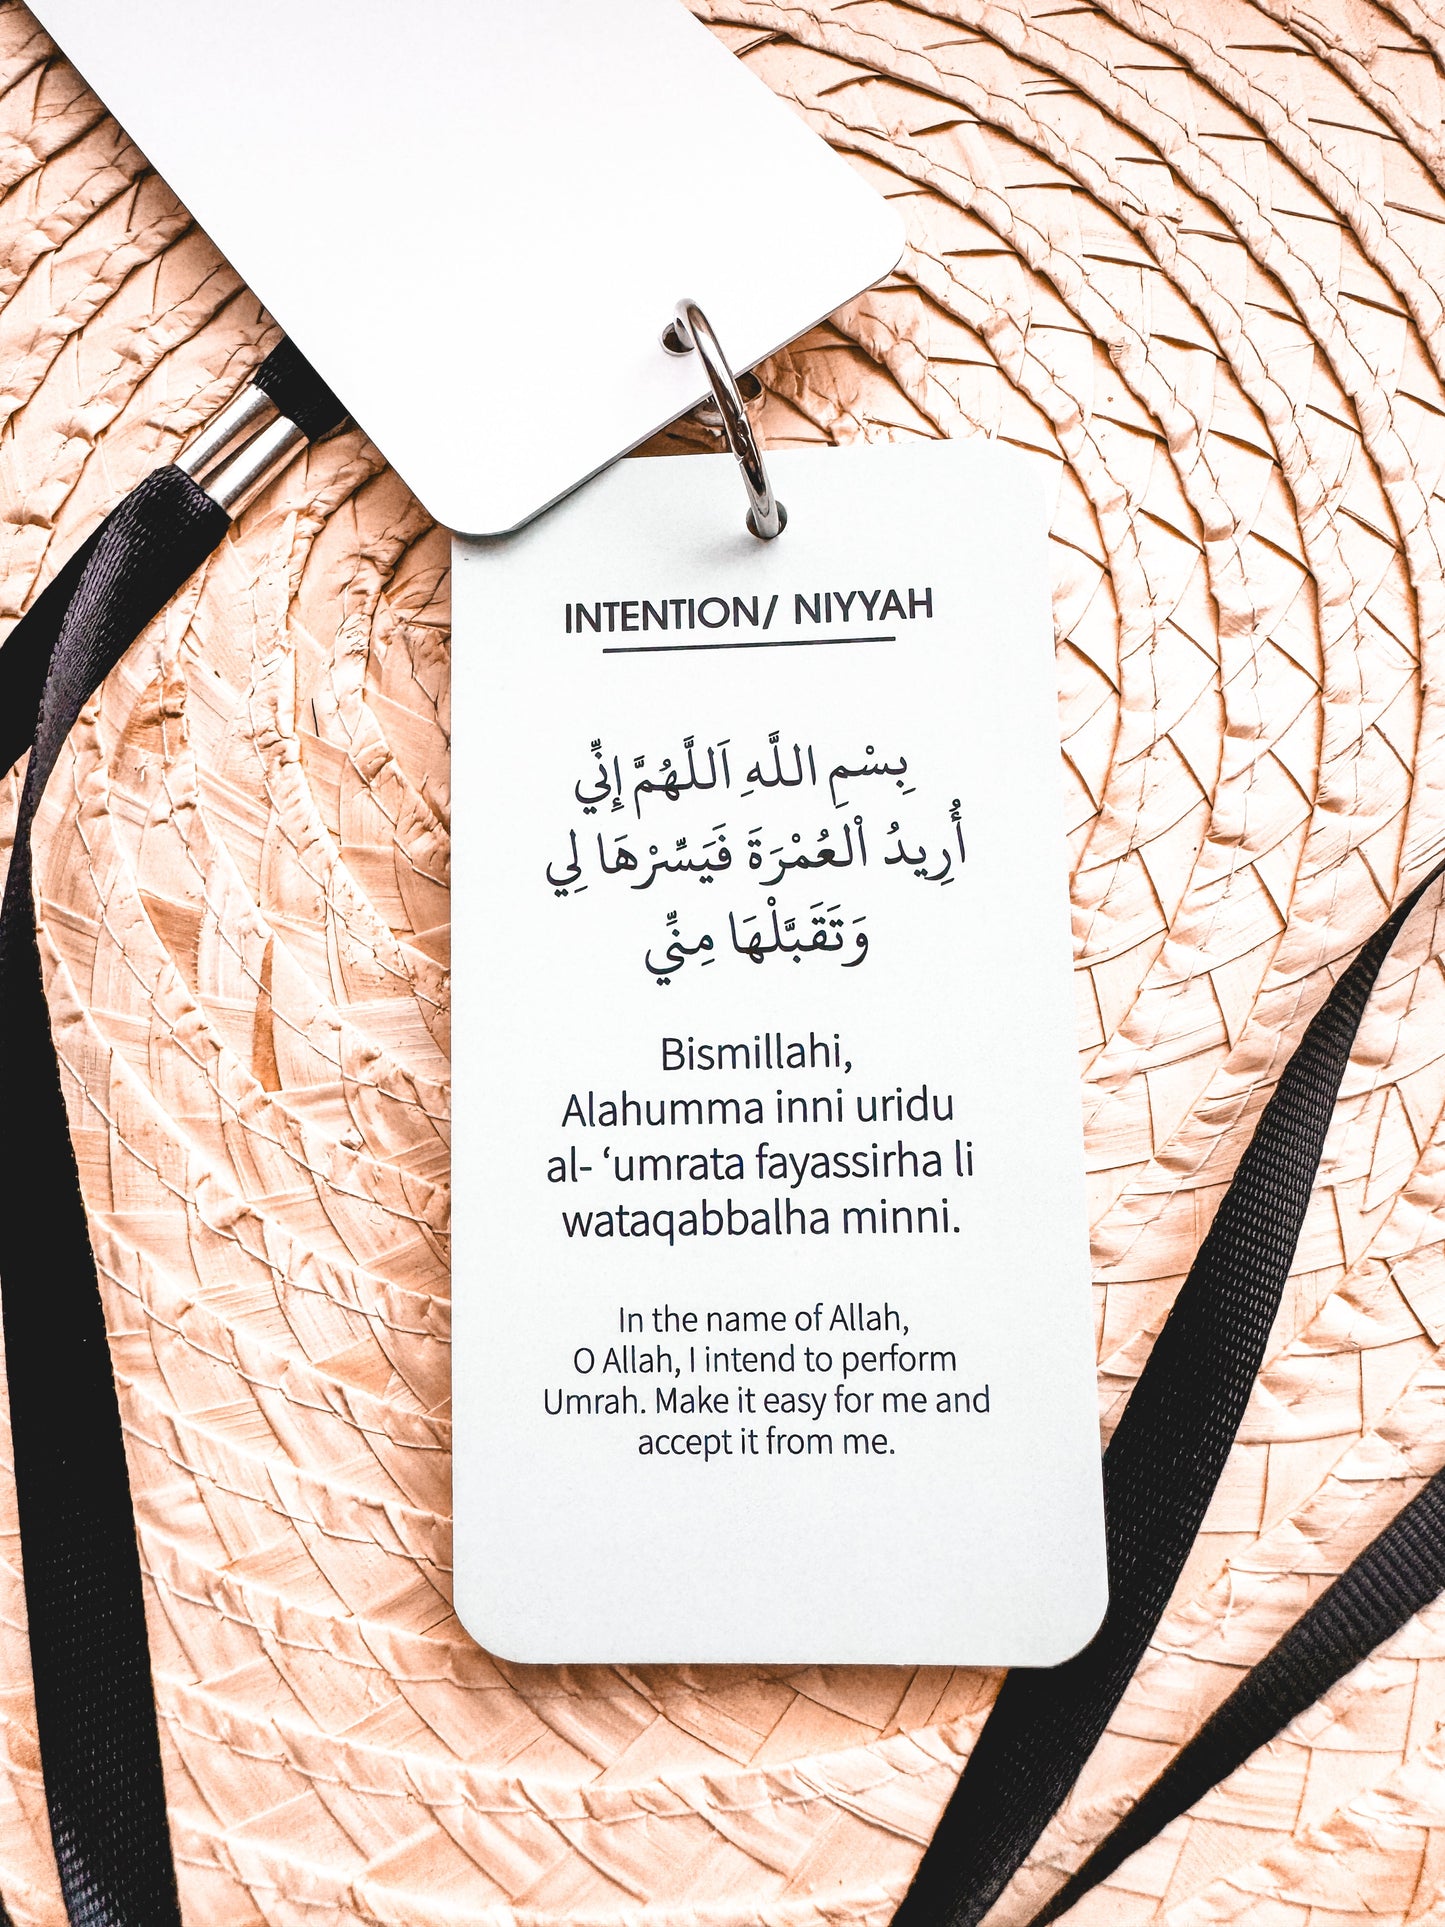 INTENTION/ NIYYAH
بِسْمِ اللَّهِ اَللَّهُمَّ إِنِّي
أُرِيدُ اْلعُمْرَةَ فَيَسِّرْهَا لِي
وَتَقَبَّلْهَا مِنِّي
Bismillahi,
Alahumma inni uridu
al- ‘umrata fayassirha li
wataqabbalha minni.
In the name of Allah,
O Allah, I intend to perform
Umrah. Make it easy for me and
accept it from me.